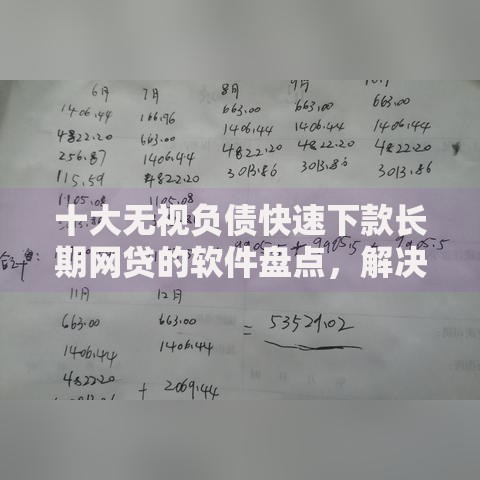 6月 7月 8月 9月
1406.44 166.96 663.00 663.00 663.00
4822.20 663.00 1406.44 1406.44 1406.44
256.87 1406.44 4822.20 4822.20 4822.20
115.59 4822.20 3013.86 3013.86 3013.86
1105.08 1105.08
十大无视负债快速下款长
期网贷的软件盘点，解决
9905.5 + 9905.5 + 9905.5
11月 12月
663.00 663.00 = 53529.02
1406.44 1406.44
4822.20 + 2069.44